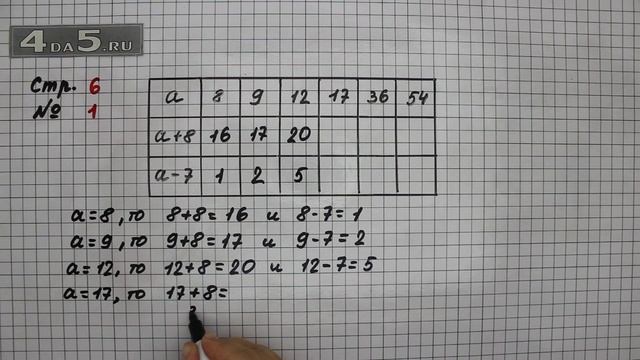 4DA5.RU
Стр. 6
№ 1
a 8 9 12 17 36 54
a+8 16 17 20
a-7 1 2 5
a=8, то 8+8=16 и 8-7=1
a=9, то 9+8=17 и 9-7=2
a=12, то 12+8=20 и 12-7=5
a=17, то 17+8=